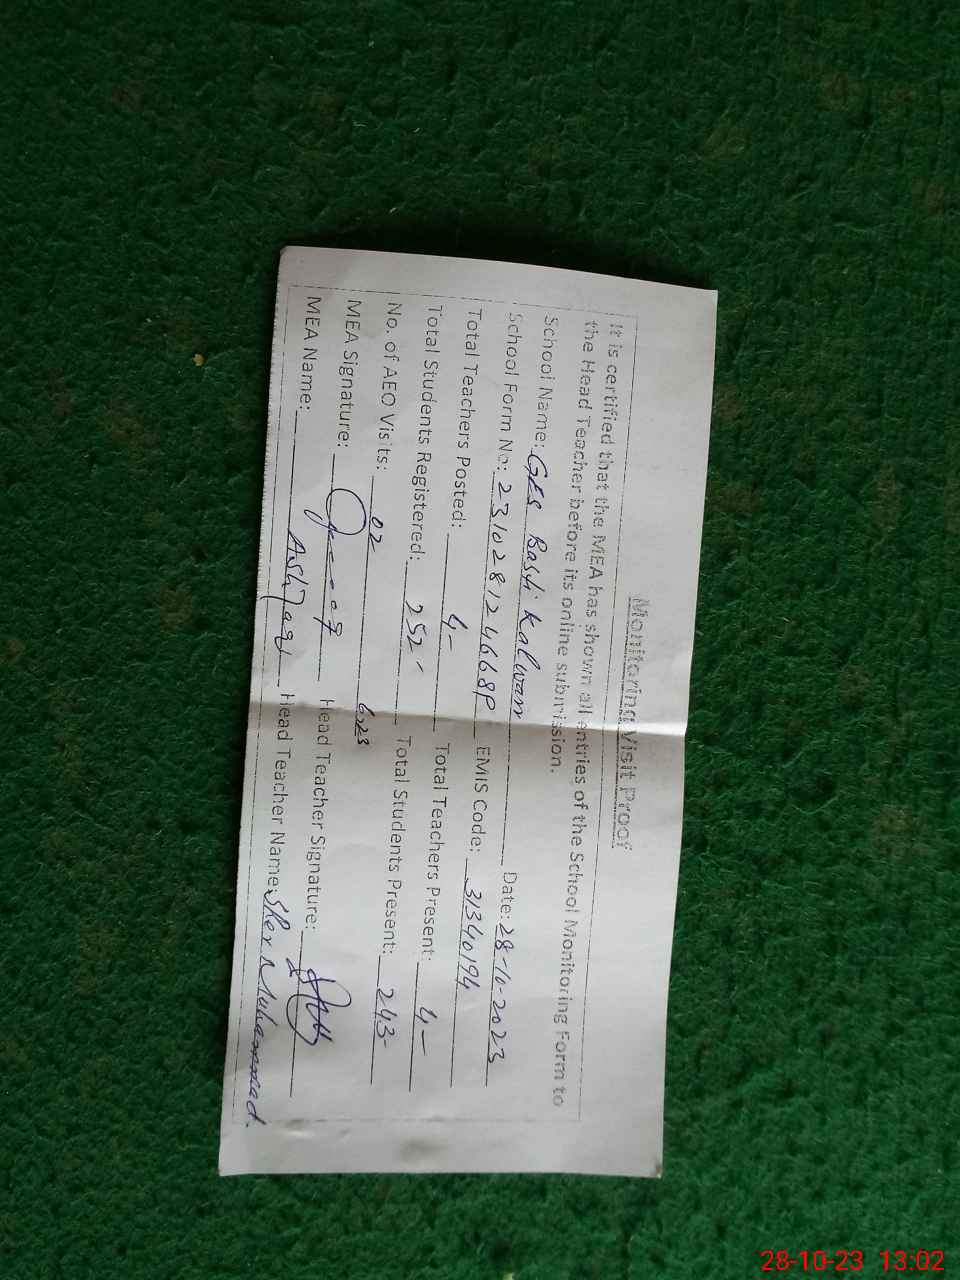 Monitoring Visit Proof
It is certified that the MEA has shown all entries of the School Monitoring Form to
the Head Teacher before its online submission.
School Name: GES Basti Kalwan Date: 28-10-2023
School Form No: 231028124668P EMIS Code: 31340194
Total Teachers Posted: 4- Total Teachers Present: 4-
Total Students Registered: 252- Total Students Present: 243-
No. of AEO Visits: 02
MEA Signature: Head Teacher Signature:
MEA Name: Head Teacher Name: Sher Muhammad.
28-10-23 13:02